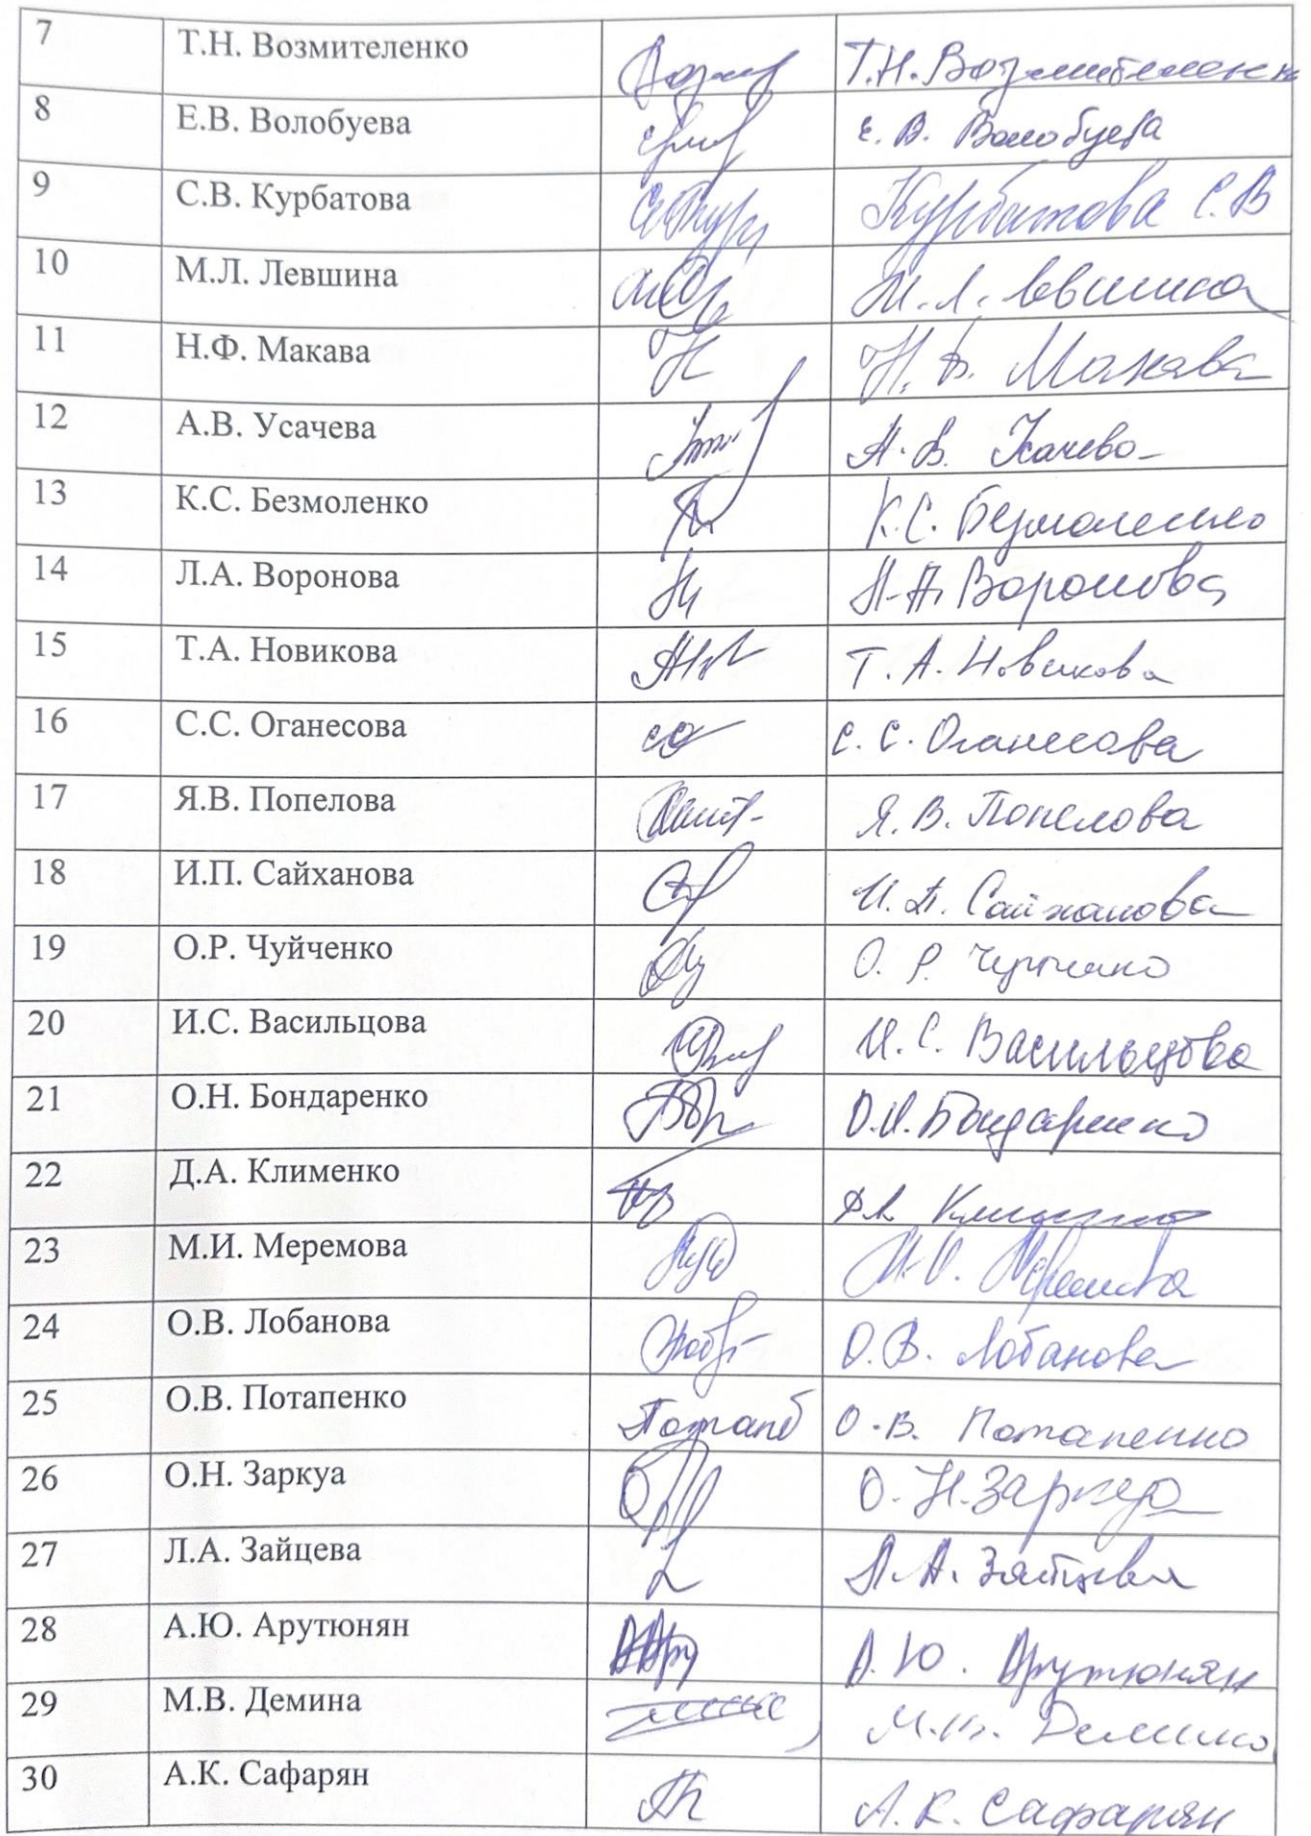 7 Т.Н. Возмителенко Т.Н. Возмителенк
8 Е.В. Волобуева Е. В. Волобуева
9 С.В. Курбатова Курбатова С.В
10 М.Л. Левшина М. Л. Левшина
11 Н.Ф. Макава Н. Ф. Макава
12 А.В. Усачева А. В.
13 К.С. Безмоленко К.С. Безмоленко
14 Л.А. Воронова Л.А. Воронова
15 Т.А. Новикова Т. А. Новикова
16 С.С. Оганесова С. С. Оганесова
17 Я.В. Попелова Я. В. Попелова
18 И.П. Сайханова И. П. Сайханова
19 О.Р. Чуйченко О. Р.
20 И.С. Васильцова И. С. Васильцова
21 О.Н. Бондаренко О.Н. Бондаренко
22 Д.А. Клименко ДА Клименко
23 М.И. Меремова М.И. Меремова
24 О.В. Лобанова О. В. Лобанова
25 О.В. Потапенко О.В. Потапенко
26 О.Н. Заркуа О. Н. Заркуа
27 Л.А. Зайцева Л. А. Зайцева
28 А.Ю. Арутюнян А. Ю. Арутюнян
29 М.В. Демина М.В. Демина
30 А.К. Сафарян А. К. Сафарян